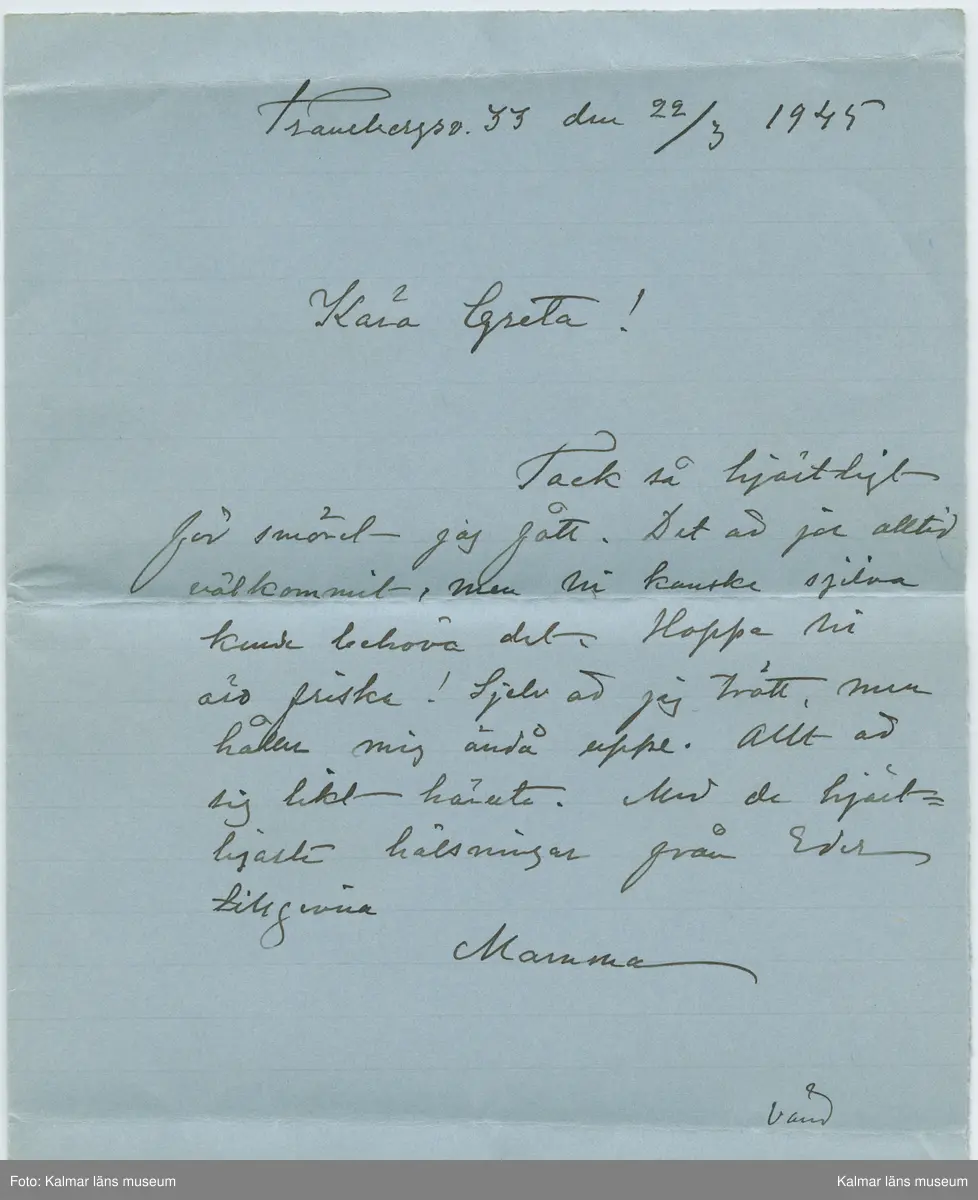 Tranebergsv. 33 den 22/3 1945
Kära Greta!
Tack så hjärtligt
för smöret jag fått. Det är ju alltid
välkommit, men Ni kanske sjelva
kunde behöva det. Hoppas Ni
äro friska! Sjelv är jag trött, men
håller mig ändå uppe. Allt är
sig likt härute. Med de hjärt=
ligaste hälsningar från Eder
tillgivna
Mamma
vänd
Foto: Kalmar läns museum
Kalmar läns museum